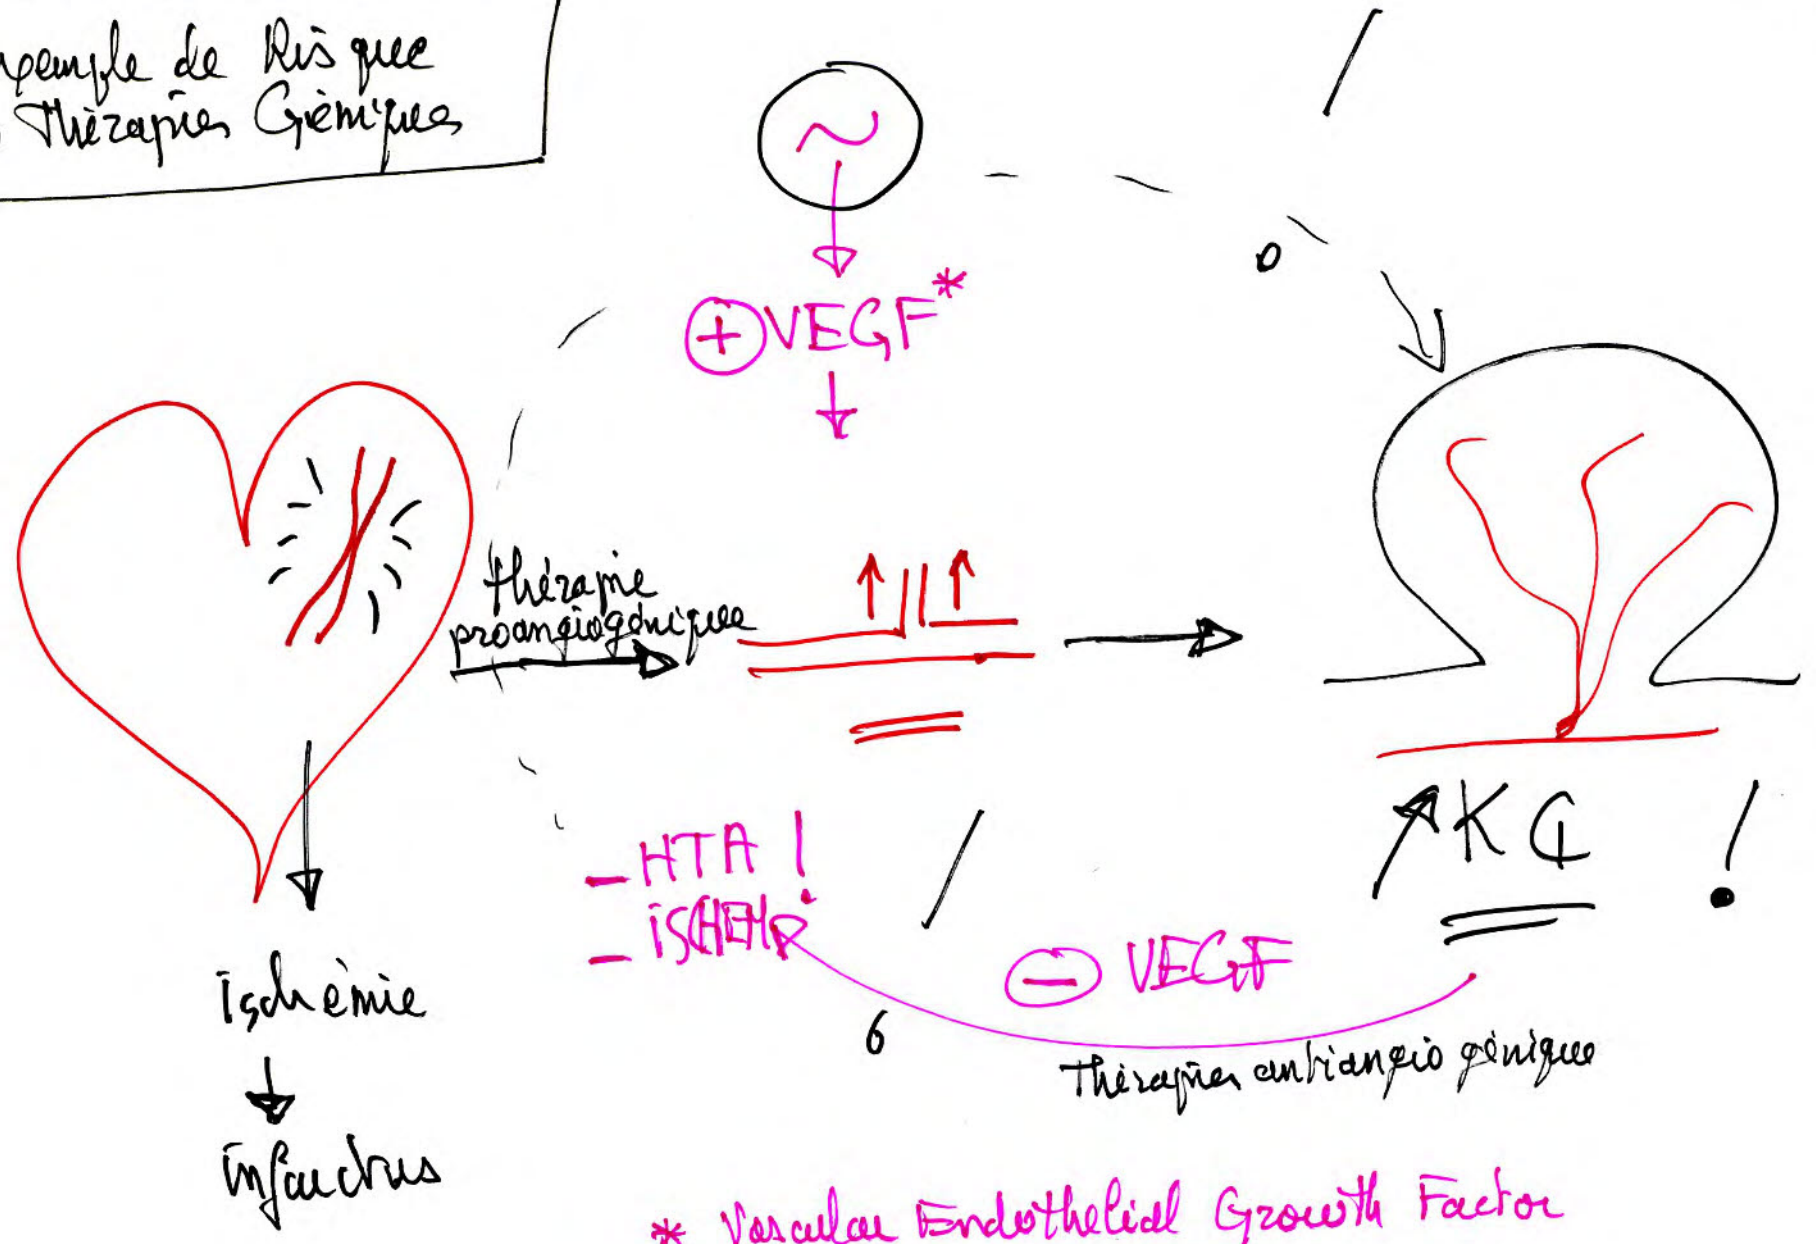 xemple de Risque
Thérapies Géniques
+ VEGF*
thérapie
proangiogénique
- HTA !
- ISCHEMIE
- VEGF
Thérapies antiangiogénique
K
!
6
ischémie
infarctus
* Vascular Endothelial Growth Factor